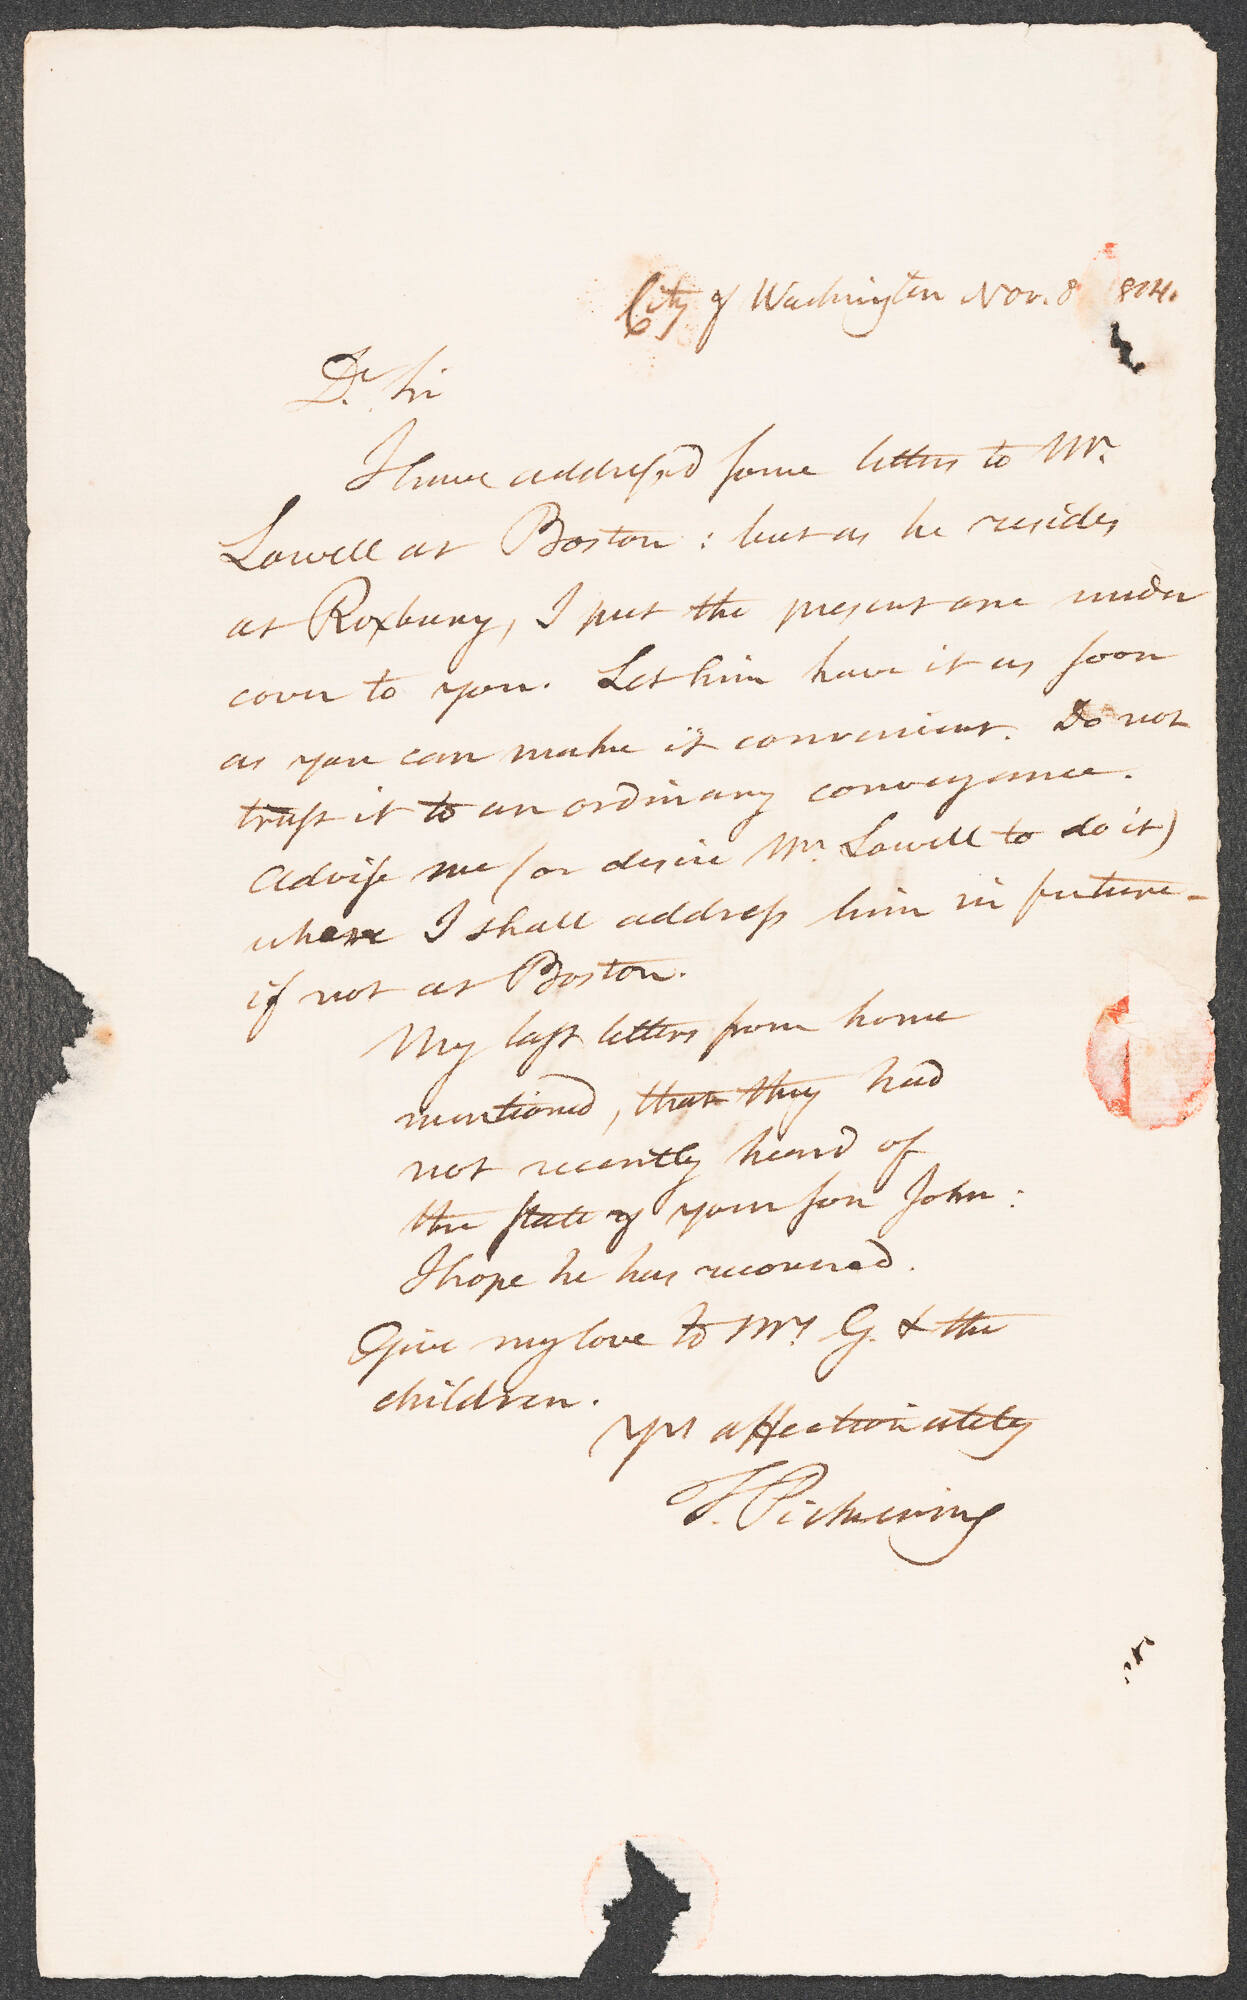 City of Washington Nov. 8 1804.
Dr. Sir
I have addressed some letters to Mr.
Lowell at Boston: but as he resides
at Roxbury, I put the present one under
cover to you. Let him have it as soon
as you can make it convenient. Do not
trust it to an ordinary conveyance.
Advise me (or desire Mr. Lowell to do it)
where I shall address him in future -
if not at Boston.
My last letters from home
mentioned, that they had
not recently heard of
the state of your son John:
I hope he has recovered.
Give my love to Mrs. G. & the
children.
Yrs affectionately
T. Pickering